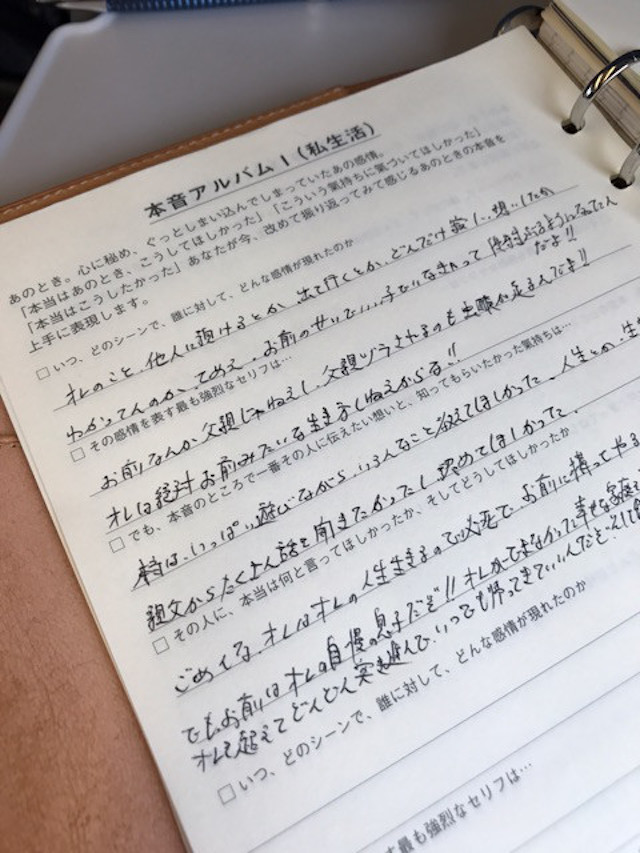 本音アルバム1(私生活)
あのとき。心に秘め、ぐっとしまい込んでしまっていたあの感情。
「本当はあのとき、こうしてほしかった」「こういう気持ちに気づいてほしかった」
「本当はこうしたかった」あなたが今、改めて振り返ってみて感じるあのときの本音を
上手に表現します。
□いつ、どのシーンで、誰に対して、どんな感情が現れたのか
オレのこと、他人に預けるとか、出て行くとか、どんだけ寂しい想いしたか
わかってんのか、てめえ。お前のせいでいい子でいなきゃって
だよ!!
□その感情を表す最も強烈なセリフは…
お前なんか父親じゃねえし、父親ヅラされるのも虫酸が走るんだよ!!
オレは絶対お前みたいな生き方しねえからな!!
□でも、本音のところで一番その人に伝えたい想いと、知ってもらいたかった気持ちは…
本当は、いっぱい遊びながら、いろんなこと教えてほしかった。人生とか、生
親父からたくさん話を聞きたかったし、認めてほしかった。
□その人に、本当は何と言ってほしかったか、そしてどうしてほしかったか
ごめんな、オレはオレの人生生きるので必死で、お前に構ってやる
でも、お前はオレの自慢の息子だぞ!!オレができなかった幸せな家庭
オレを超えてどんどん突き進んで、いつでも帰ってきていいんだぞ。そして
□いつ、どのシーンで、誰に対して、どんな感情が現れたのか
す最も強烈なセリフは…